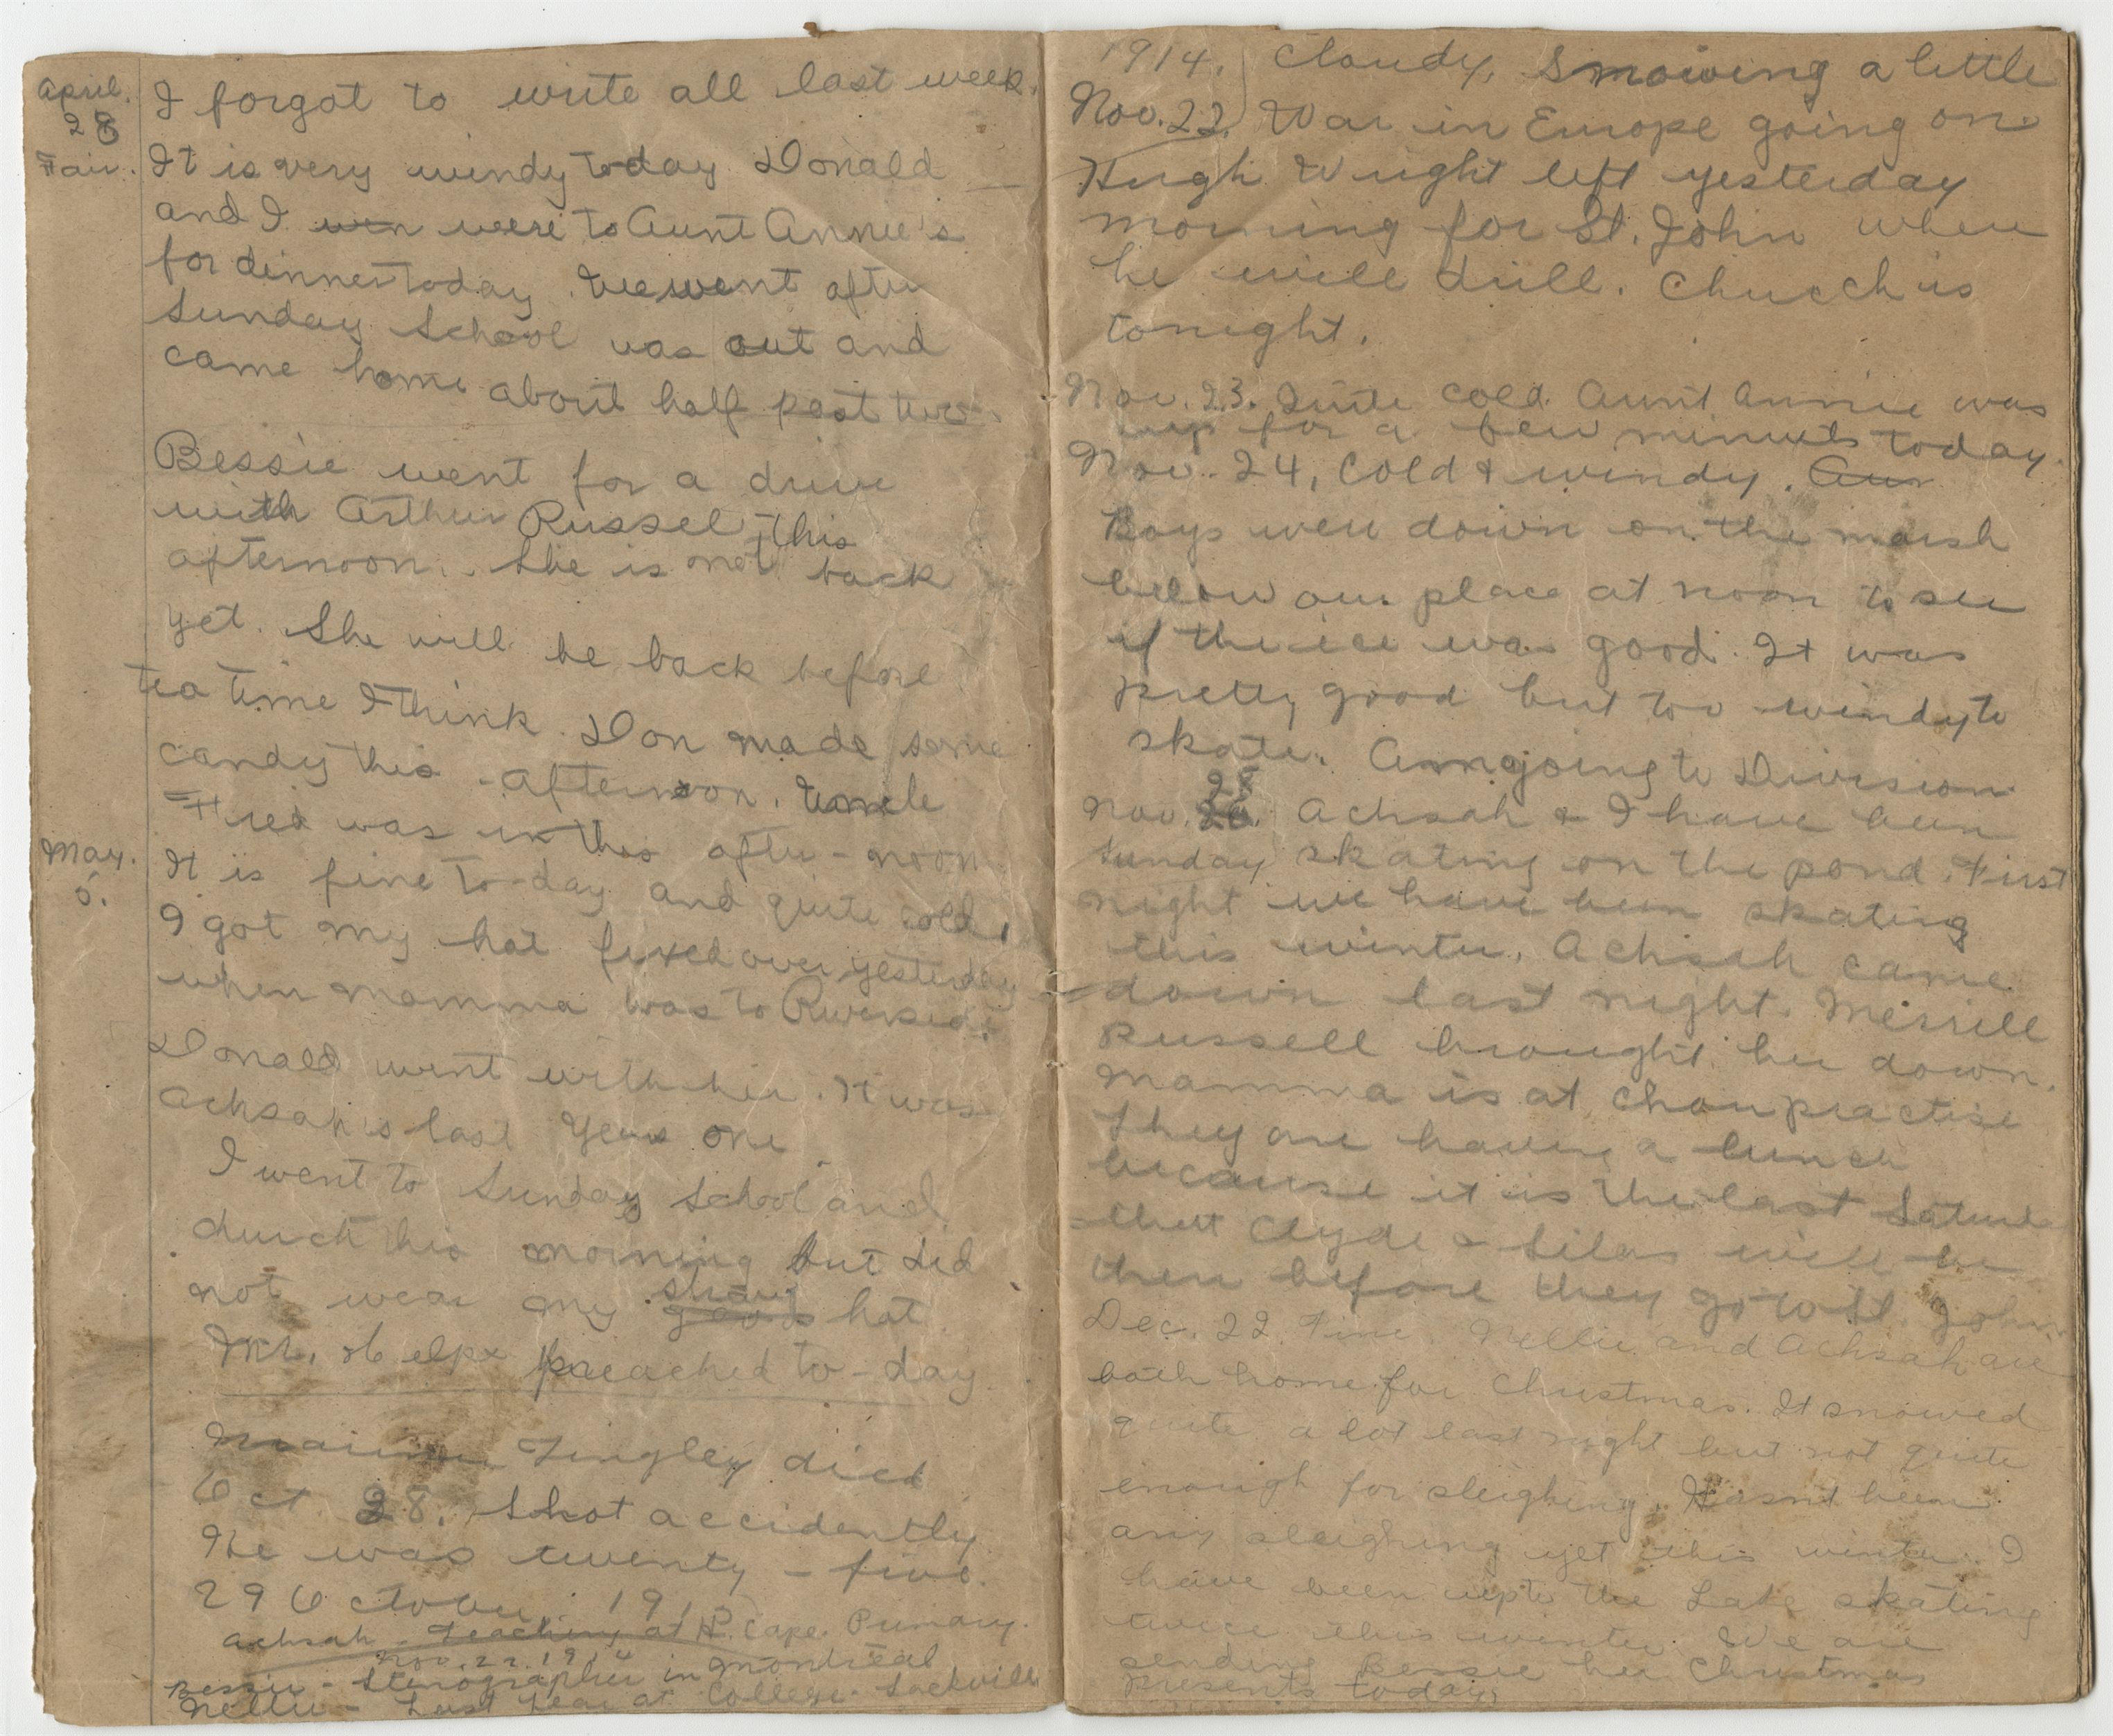 April. I forgot to write all last week.
28
Fair. It is very windy today Donald
and I wen were to Aunt Annie's
for dinner today. We went after
Sunday School was out and
came home about half past two.
Bessie went for a drive
with Arthur Russel this
afternoon. She is not back
yet. She will be back before
tea time I think. Don made some
candy this afternoon. Uncle
Fred was in this after-noon
May. It is fine to-day and quite cold.
5.
I got my hat fixed over yesterday
when mamma was to Riverside.
Donald went with her. It was
Achsah's last years one.
I went to Sunday School and
church this morning but did
not wear my straw hat.
Mr. preached to-day
Tingley died
Oct 28. Shot accidently
He was twenty-five.
29 October. 191
Achsah - Teaching at H. Cape Primary.
Nov. 22. 1914
Bessie - Stenographer in Montreal
Nellie - Last Year at College - Sackville
1914. Cloudy, Snowing a little
Nov. 22. War in Europe going on.
Hugh Wright left yesterday
morning for St. John where
he will drill. Church is
tonight.
Nov. 23. Quite cold. Aunt Annie was
up for a few minutes today.
Nov. 24, Cold & windy. Aun
Boys were down on the marsh
below our place at noon to see
if the ice was good. It was
pretty good but too windy to
skate. Am going to Division
28
Nov. 26. Achsah & I have been
Sunday skating on the pond. First
night we have been skating
this winter. Achsah came
down last night. Merrill
Russell brought her down.
Mamma is at choir practise
They are having a lunch
because it is the last Saturda
that Clyde & Silas will be
there before they go to St. John
Dec. 22. Fine. Nellie and Achsah are
both home for Christmas. It snowed
quite a lot last night but not quite
enough for sleighing. Hasn't been
any sleighing yet this winter. I
have been up to the Lake skating
twice this winter. We are
sending Bessie her Christmas
presents today.